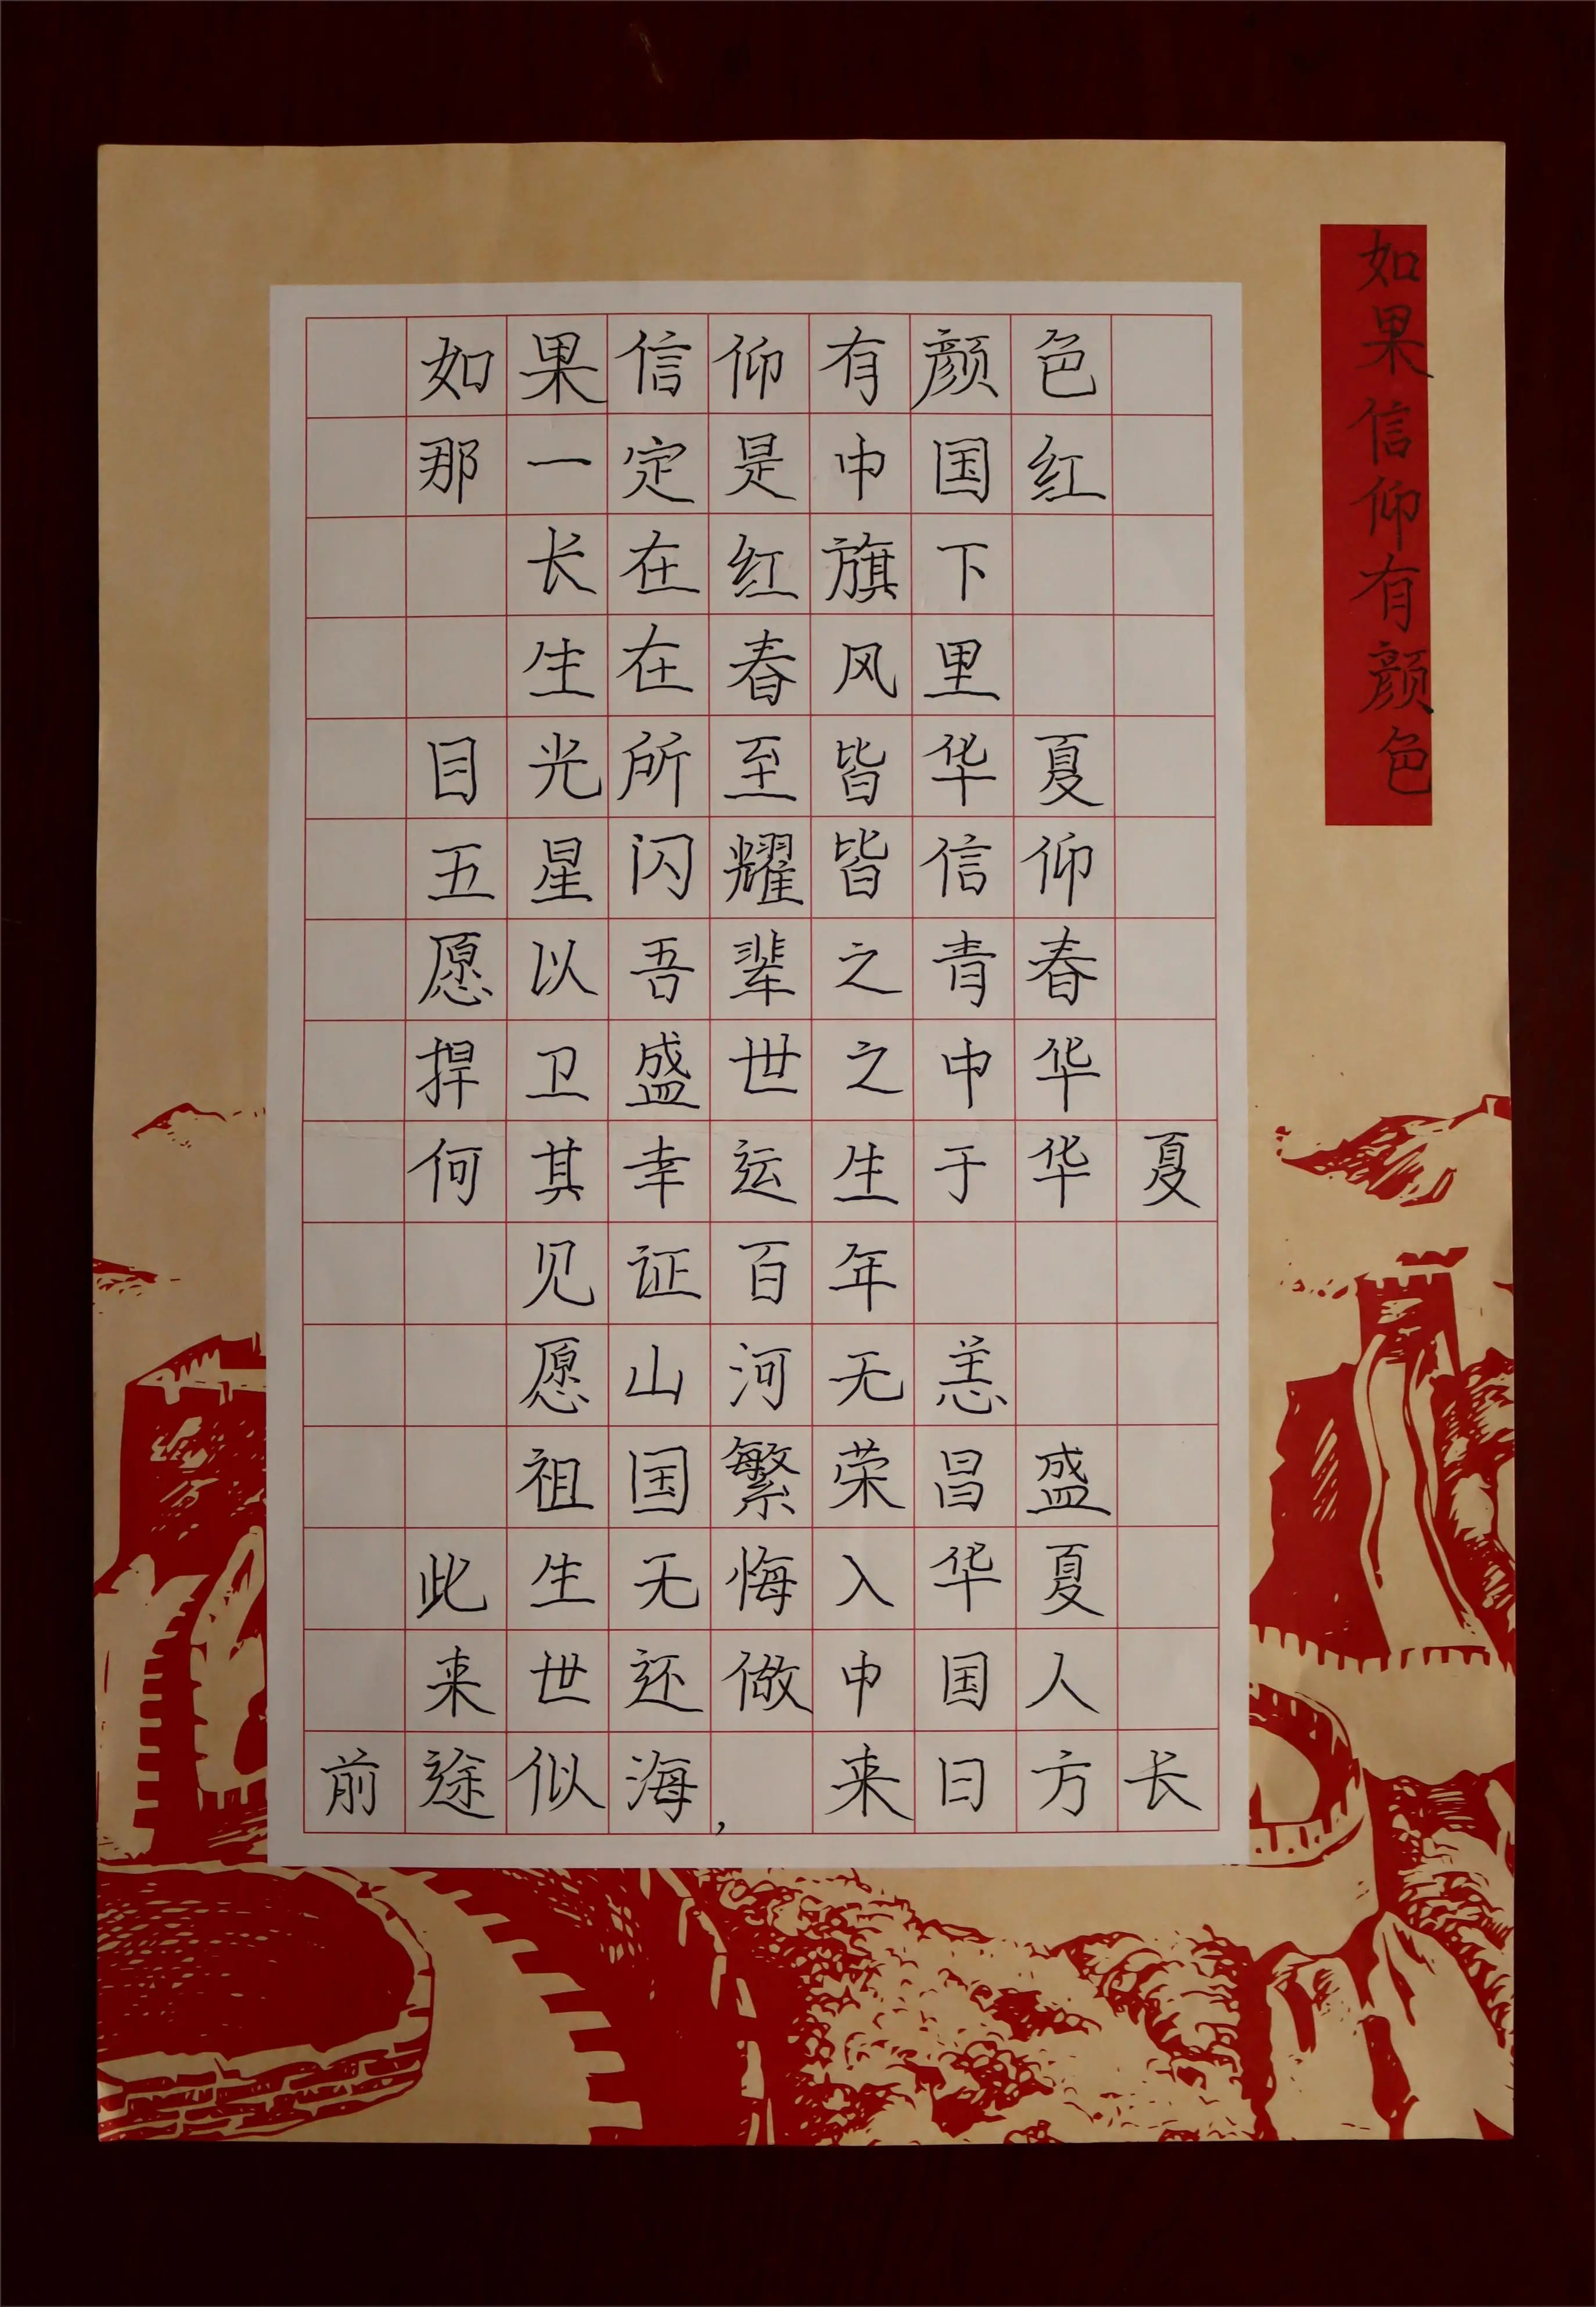 如果信仰有颜色
如果信仰有颜色
那一定是中国红
长在红旗下
生在春风里
目光所至皆华夏
五星闪耀皆信仰
愿以吾辈之青春
捍卫盛世之中华
何其幸运生于华夏
见证百年
愿山河无恙
祖国繁荣昌盛
此生无悔入华夏
来世还做中国人
前途似海，来日方长